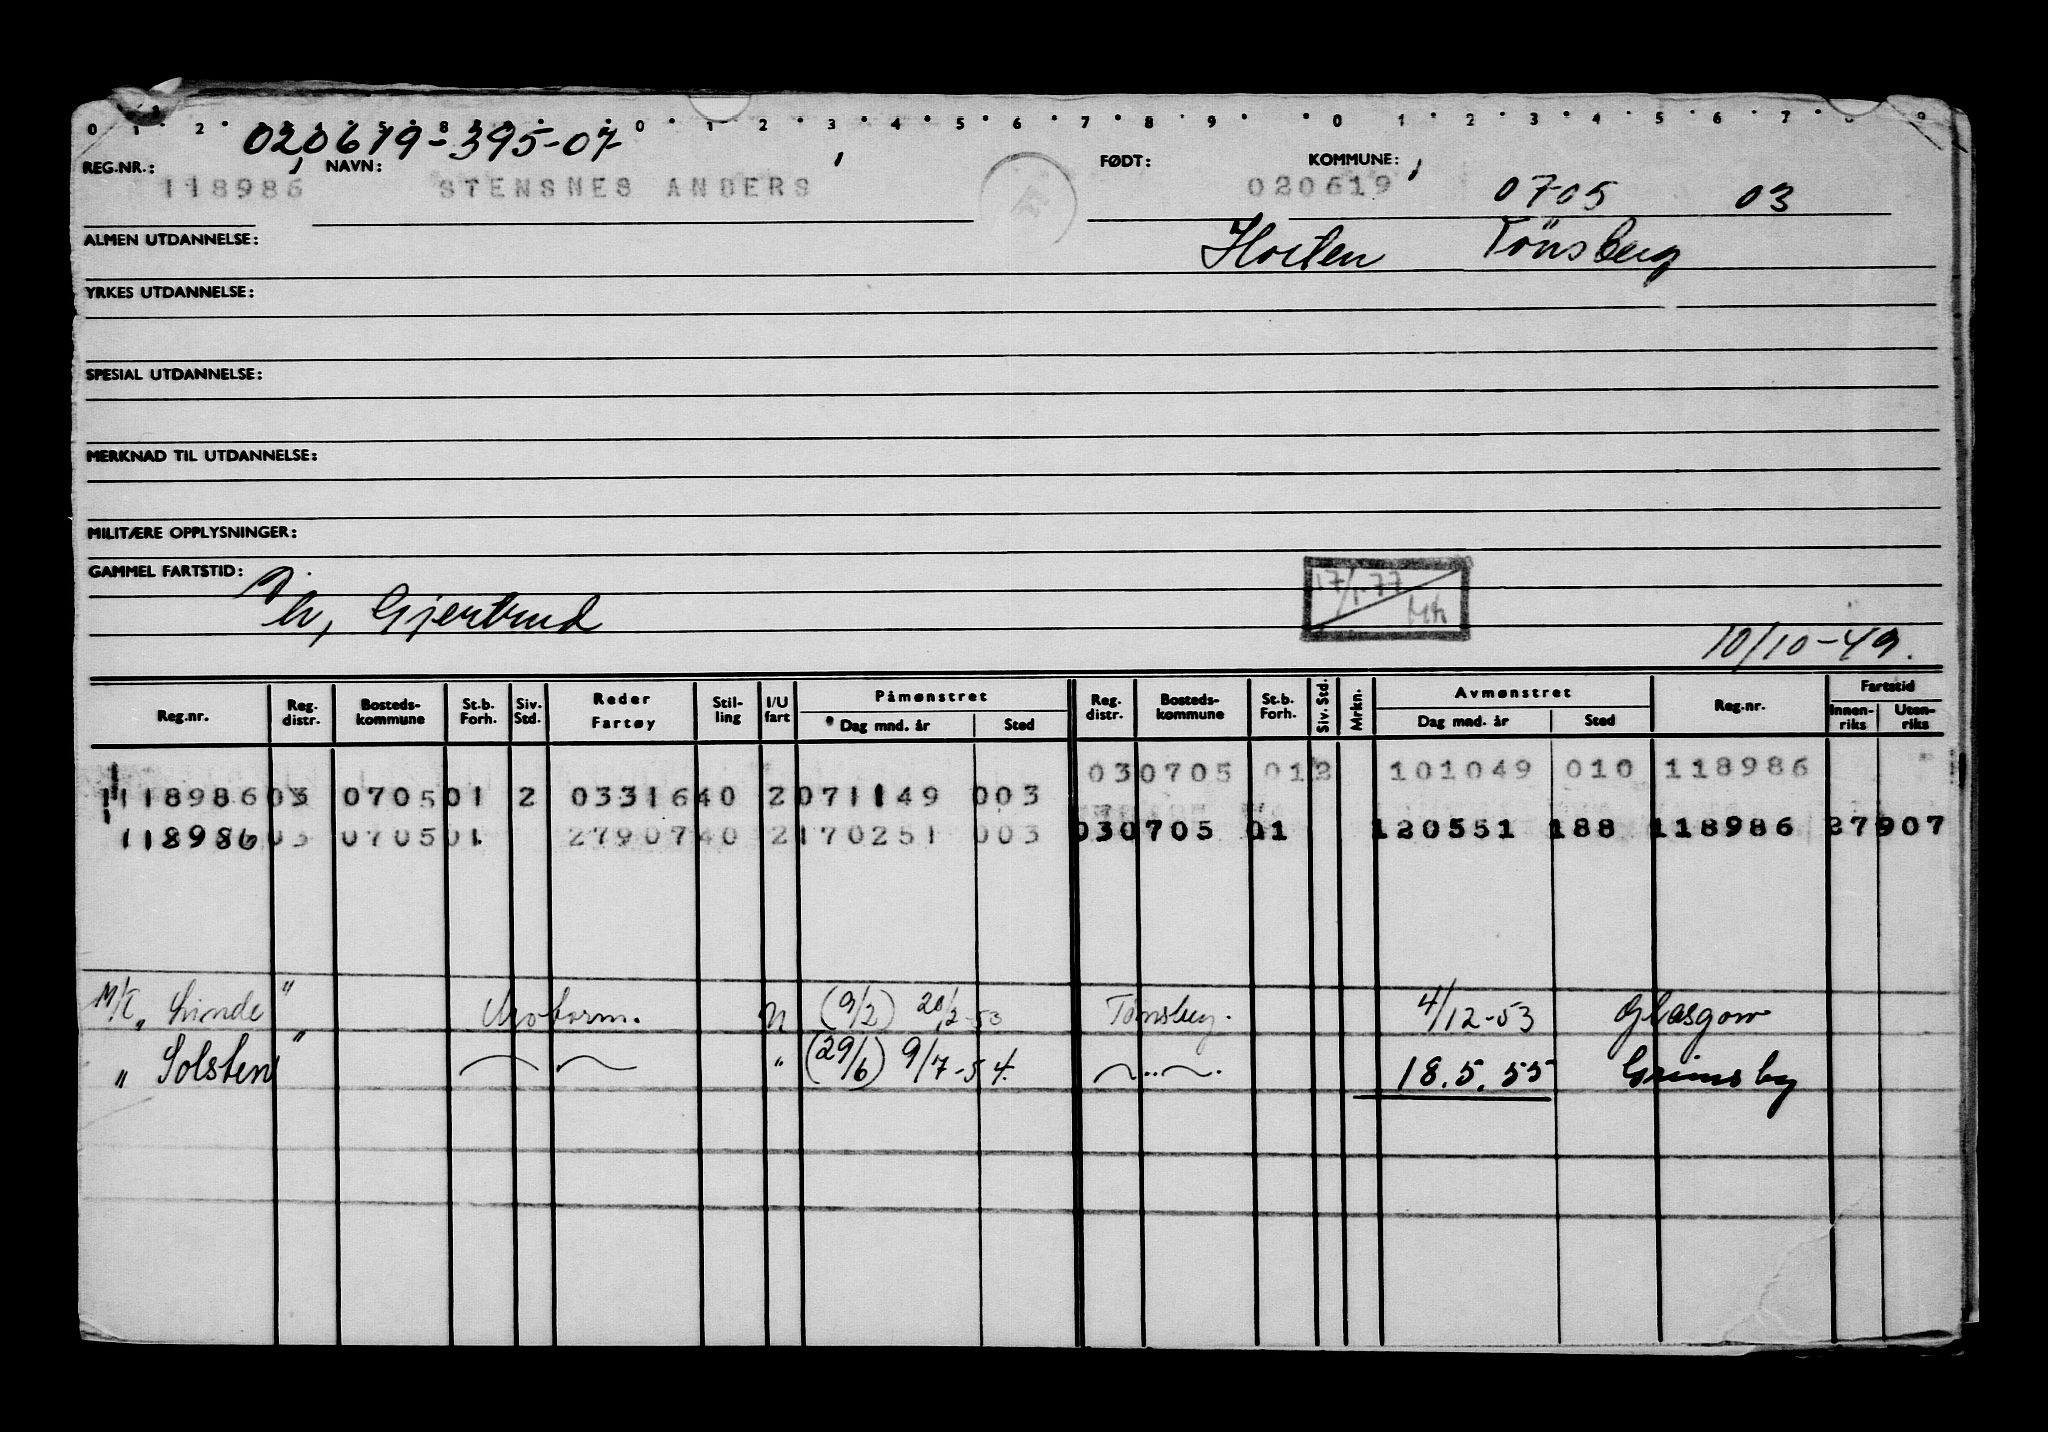 0 1 2 5 8 0 1 2 3 4 5 6 7 8 9 0 1 2 3 4 5 6 7 9
020619-395-07
REG.NR.: NAVN: FØDT: KOMMUNE:
118986 STENSNES ANDERS 020619 0705 03
ALMEN UTDANNELSE: Horten Tönsberg
YRKES UTDANNELSE:
SPESIAL UTDANNELSE:
MERKNAD TIL UTDANNELSE:
MILITÆRE OPPLYSNINGER:
GAMMEL FARTSTID:
17/1-77
Gjertrud
10/10-49.
Reg.nr. Reg. distr. Bosteds-kommune St.b. Forh. Siv. Std. Reder Fartøy Stil-ling I/U fart Påmønstret Dag mnd. år Sted Reg. distr. Bosteds-kommune St.b. Forh. Siv. Std. Mrkn. Avmønstret Dag mnd. år Sted Reg.nr. Fartstid Innen-riks Uten-riks
030705 012 101049 010 118986
118986 03 0705 01 2 03316 40 2 071149 003
118986 03 0705 01 27907 40 2 170251 003 030705 01 120551 188 118986 27907
M/T „ Linde " (9/2) 20/2-53 Tønsberg. 4/12-53 Glasgow
„ Solsten " " (29/6) 9/7-54. 18.5.55 Grimsby